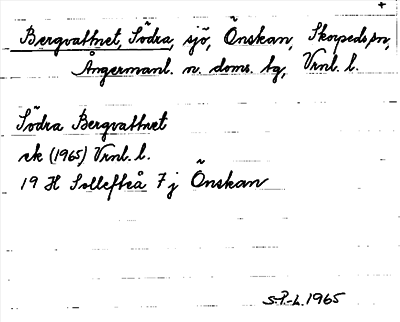 +
Bergvattnet, Södra, sjö, Önskan, Skorpeds sn,
Ångermanl. n. doms. tg, Vrnl. l.
Södra Bergvattnet
ek (1965) Vrnl. l.
19 H Sollefteå 7 j Önskan
S.P-L. 1965